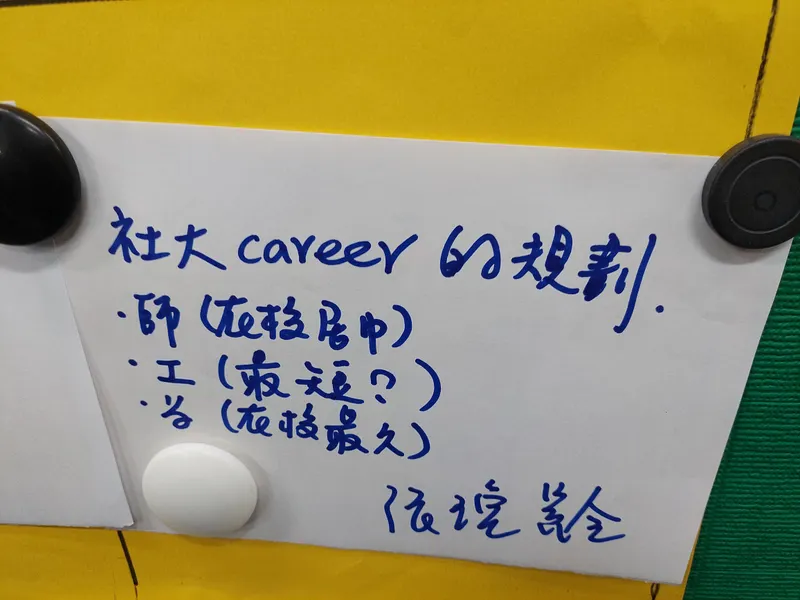 社大 career 的規劃.
·師 (在校居中)
·工 (最短?)
·学 (在校最久)
張瑄